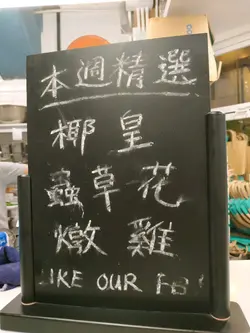 本週精選
椰皇
蟲草花
燉雞
LIKE OUR FB